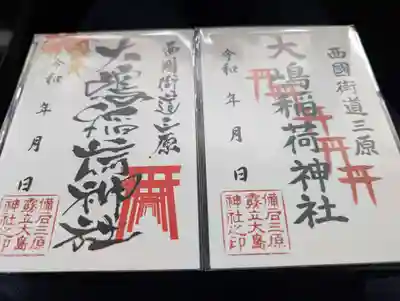 西國街道三原
大嶋稲荷神社
令和 年 月 日
備后三原
霧立大島
神社之印
西國街道三原
大嶋稲荷神社
令和 年 月 日
備后三原
霧立大島
神社之印